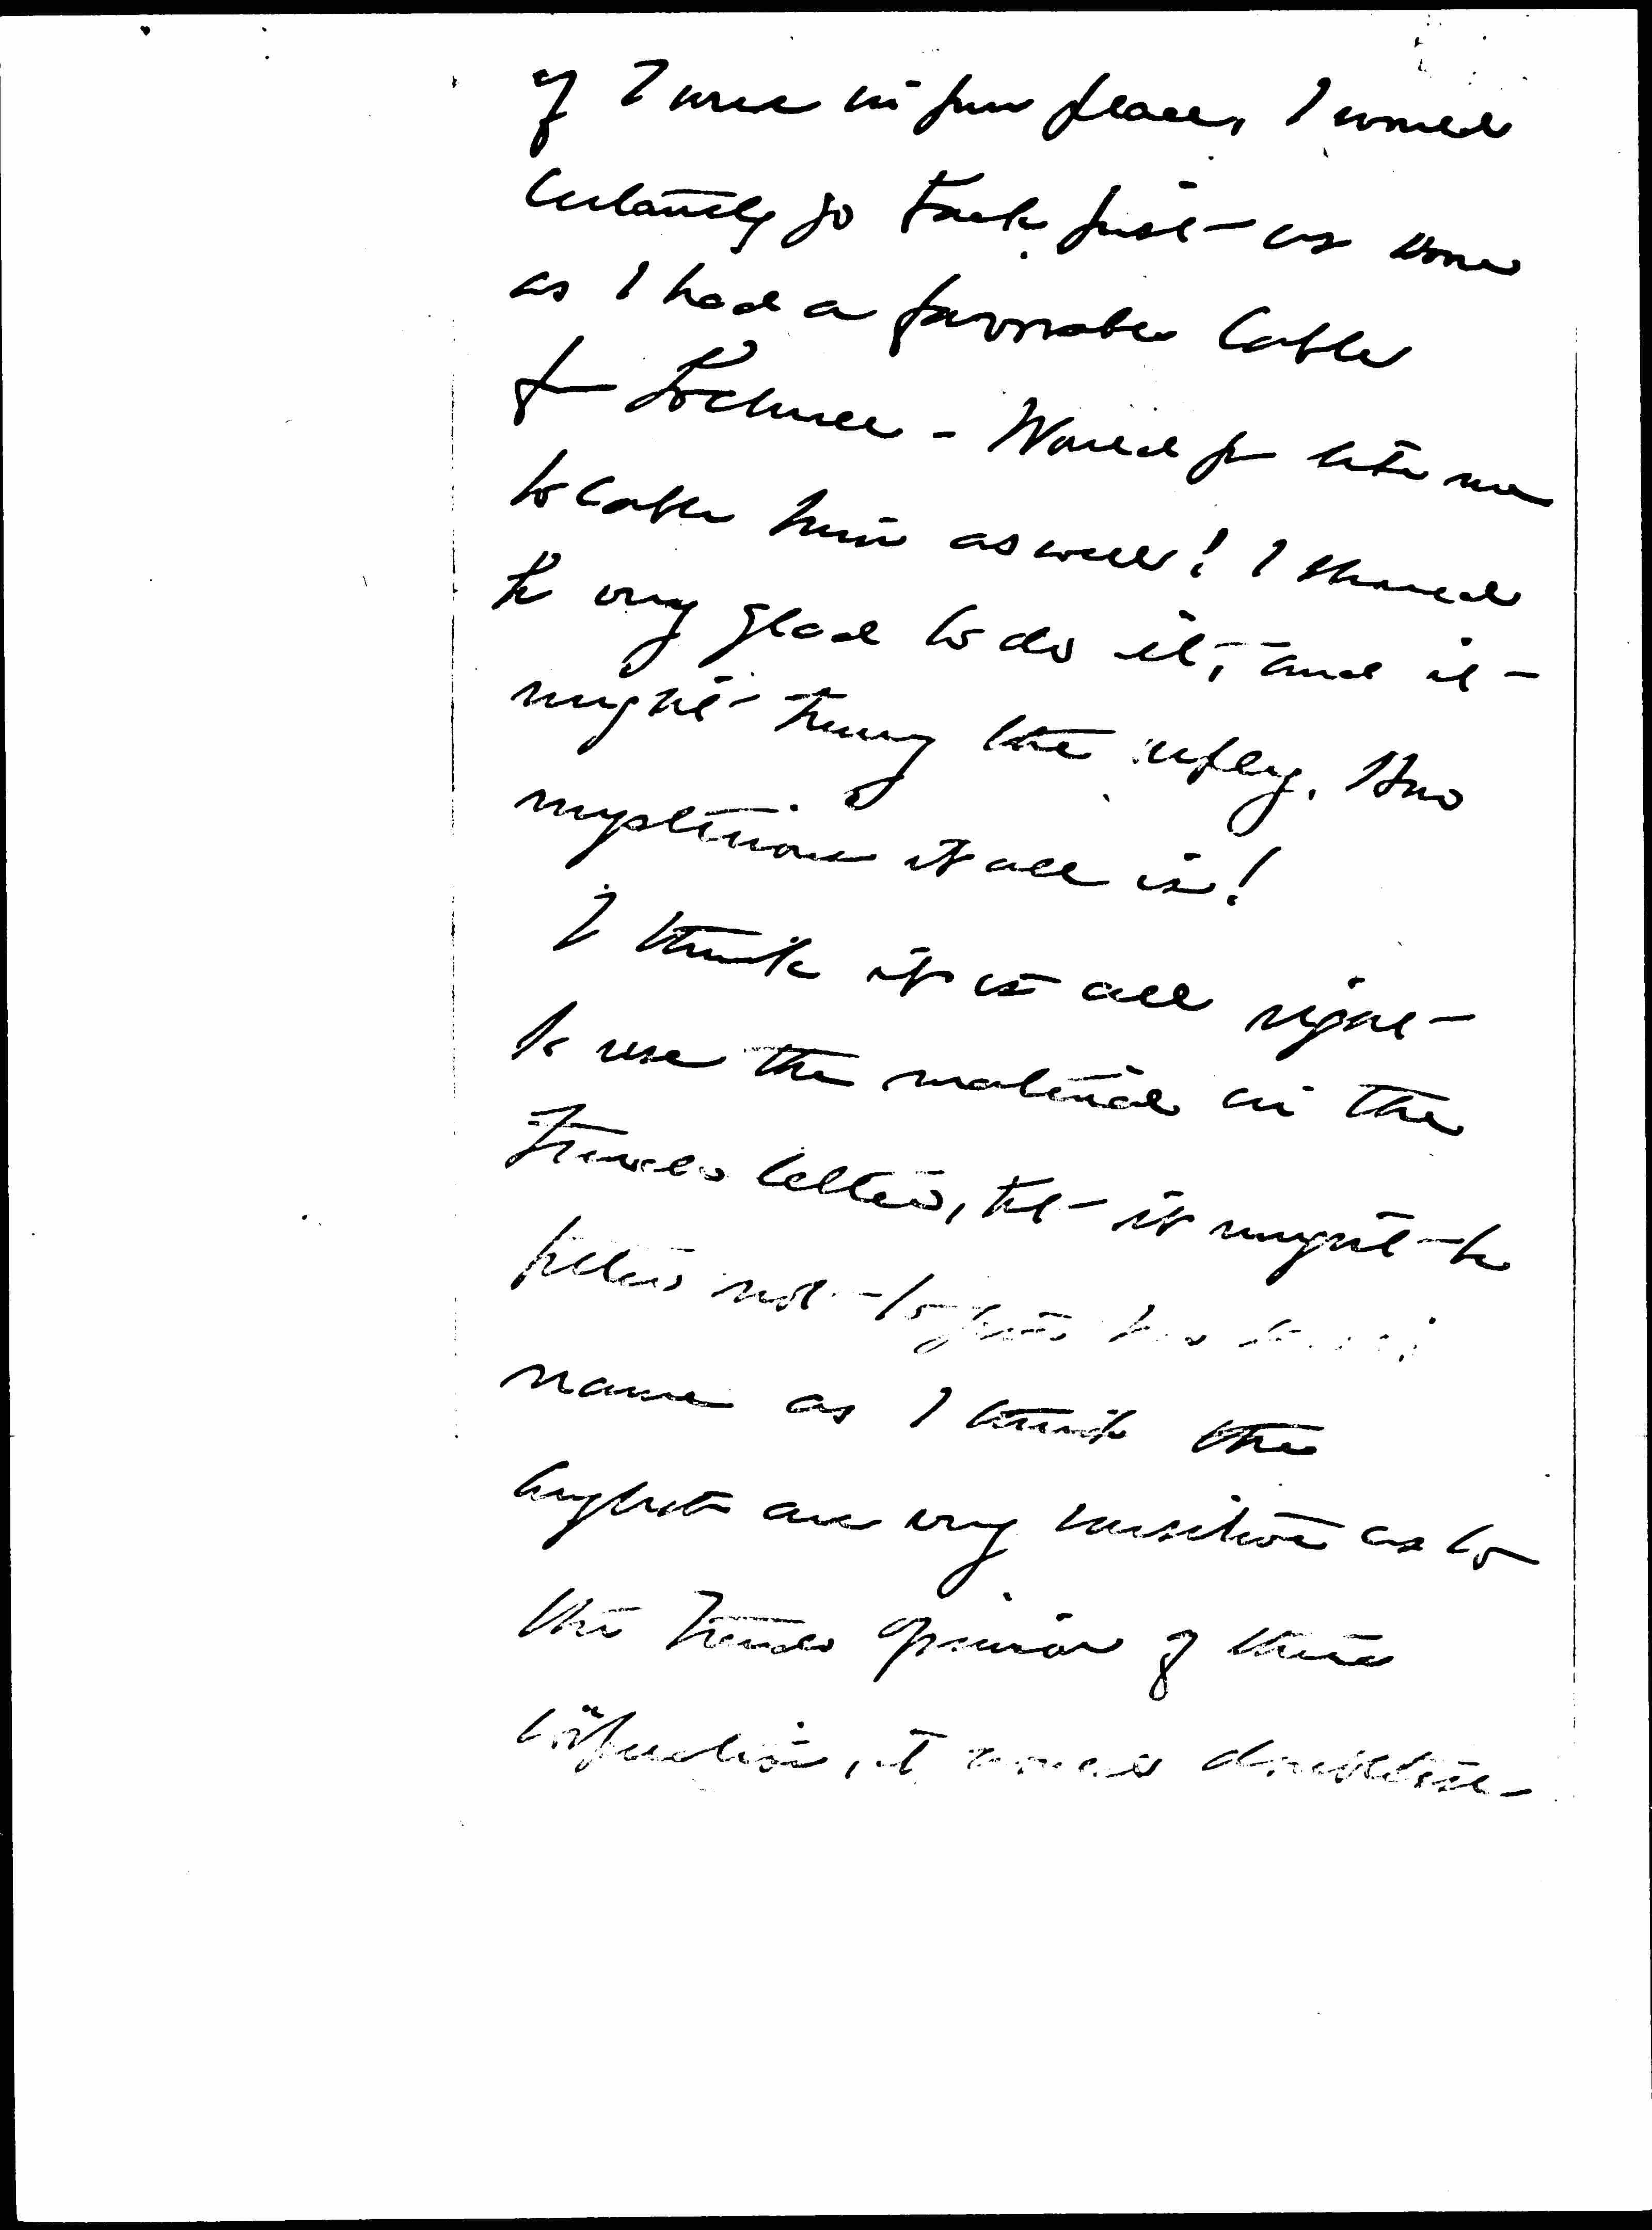 if I were in your place, I would
certainly go back just as soon
as I had a favorable cable
fr Lochner - Would you like me
to cable him as well! I should
be very glad to do it, and it
might bring the reply. How
mysterious it all is!
I think it is all right
to use the material in the
letter, but it might be
better not to give
name as I think the
are very sensitive as to
the opinion of their
, it would doubtless